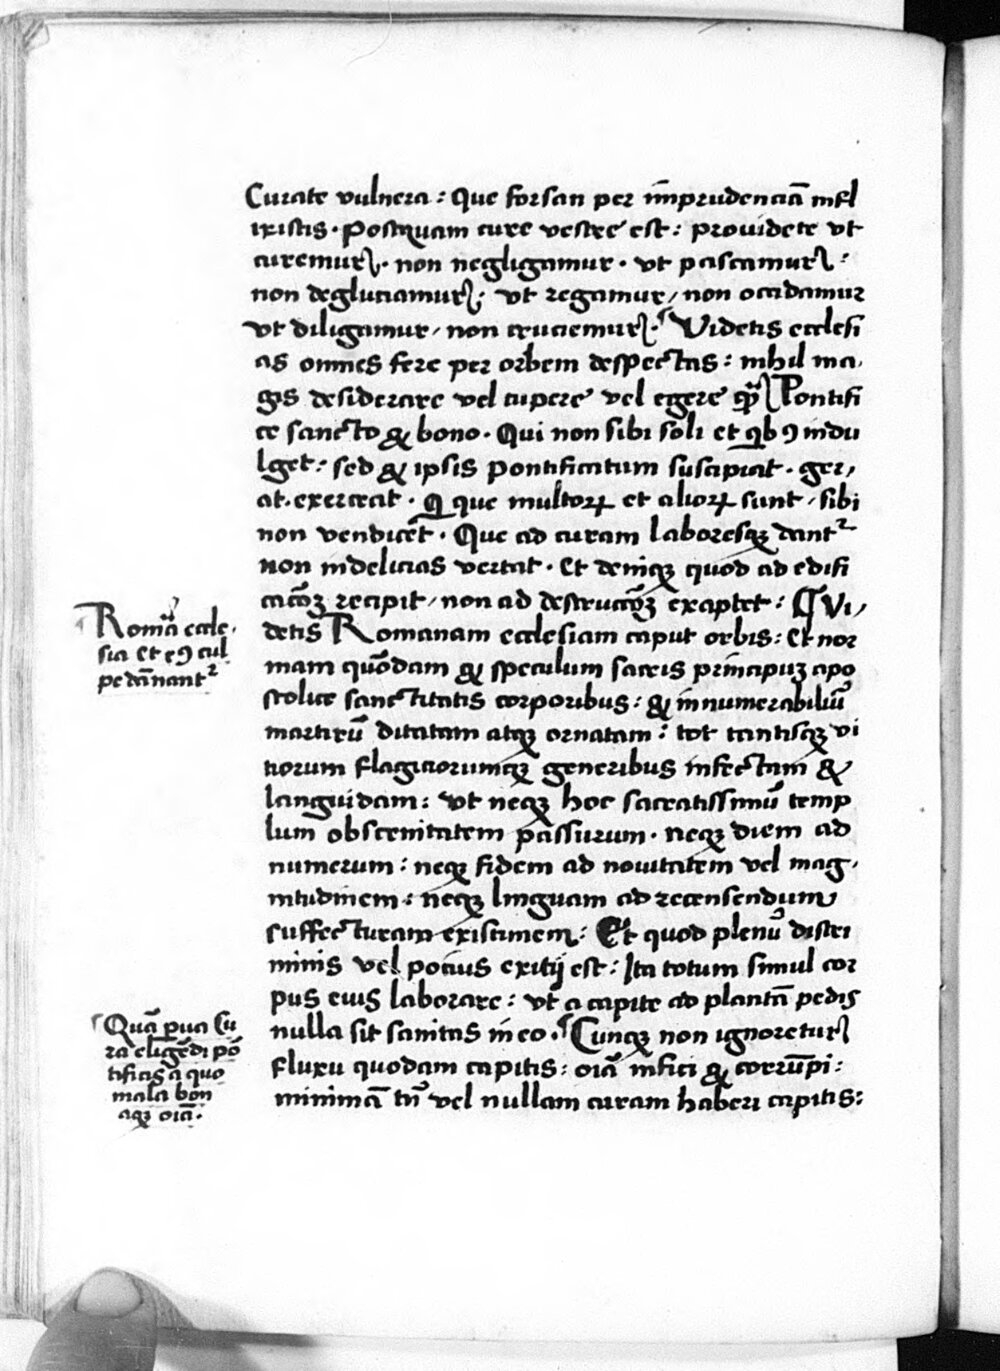 Curate vulnera: Que forsan per īmprudenciā infl
ixistis. Postquam cure vestre est: prouidete vt
curemur. non negligamur. vt pascamur:
non deglutiamur. vt regamur, non occidamur
vt diligamur, non cruciemur. Videtis ecclesi
as omnes fere per orbem despectas: nihil ma,
gis desiderare vel cupere vel egere qͣꝫ Pontifi
ce sancto & bono. Qui non sibi soli et qbꝰ indu
lget: sed & ipsis pontificatum suscipiat. ger,
at. exerceat. Q que multoꝝ et alioꝝ sunt, sibi
non vendicet. Que ad curam laboresqꝫ dantʳ
non in delicias vertat. Et deniqꝫ quod ad edifi
cacōꝫ recipit, non ad destruccōꝫ exaptet: ¶ Vi,
detis Romanam ecclesiam caput orbis: Et nor
mam quōdam & speculum sacris principuꝫ apo
stolice sanctitatis corporibus: & innumerabiliū
martirū ditatam atqꝫ ornatam: tot tantisqꝫ vi
tiorum flagitiorumqꝫ generibus infectam &
languidam: vt neqꝫ hoc sacratissimū temp
lum obscenitatem passurum. neqꝫ diem ad
numerum: neqꝫ fidem ad nouitatem vel mag,
nitudinem: neqꝫ linguam ad recensendum
suffecturam existimem: Et quod plenū discri
minis vel pocius exitij est: Ita totum simul cor
pus eius laborare: vt a capite ad plantā pedis
nulla sit sanitas in eo. Cunqꝫ non ignoretur
fluxu quodam capitis: oīa infici & corrūpi:
minimā tn̄ vel nullam curam haberi capitis:
Romāa eccle,
sia Et eꝰ cul
pe dānantʳ
Quā pua Cu
ra eligēdi pō
tificis a quo
mala bon
aqꝫ oīa.